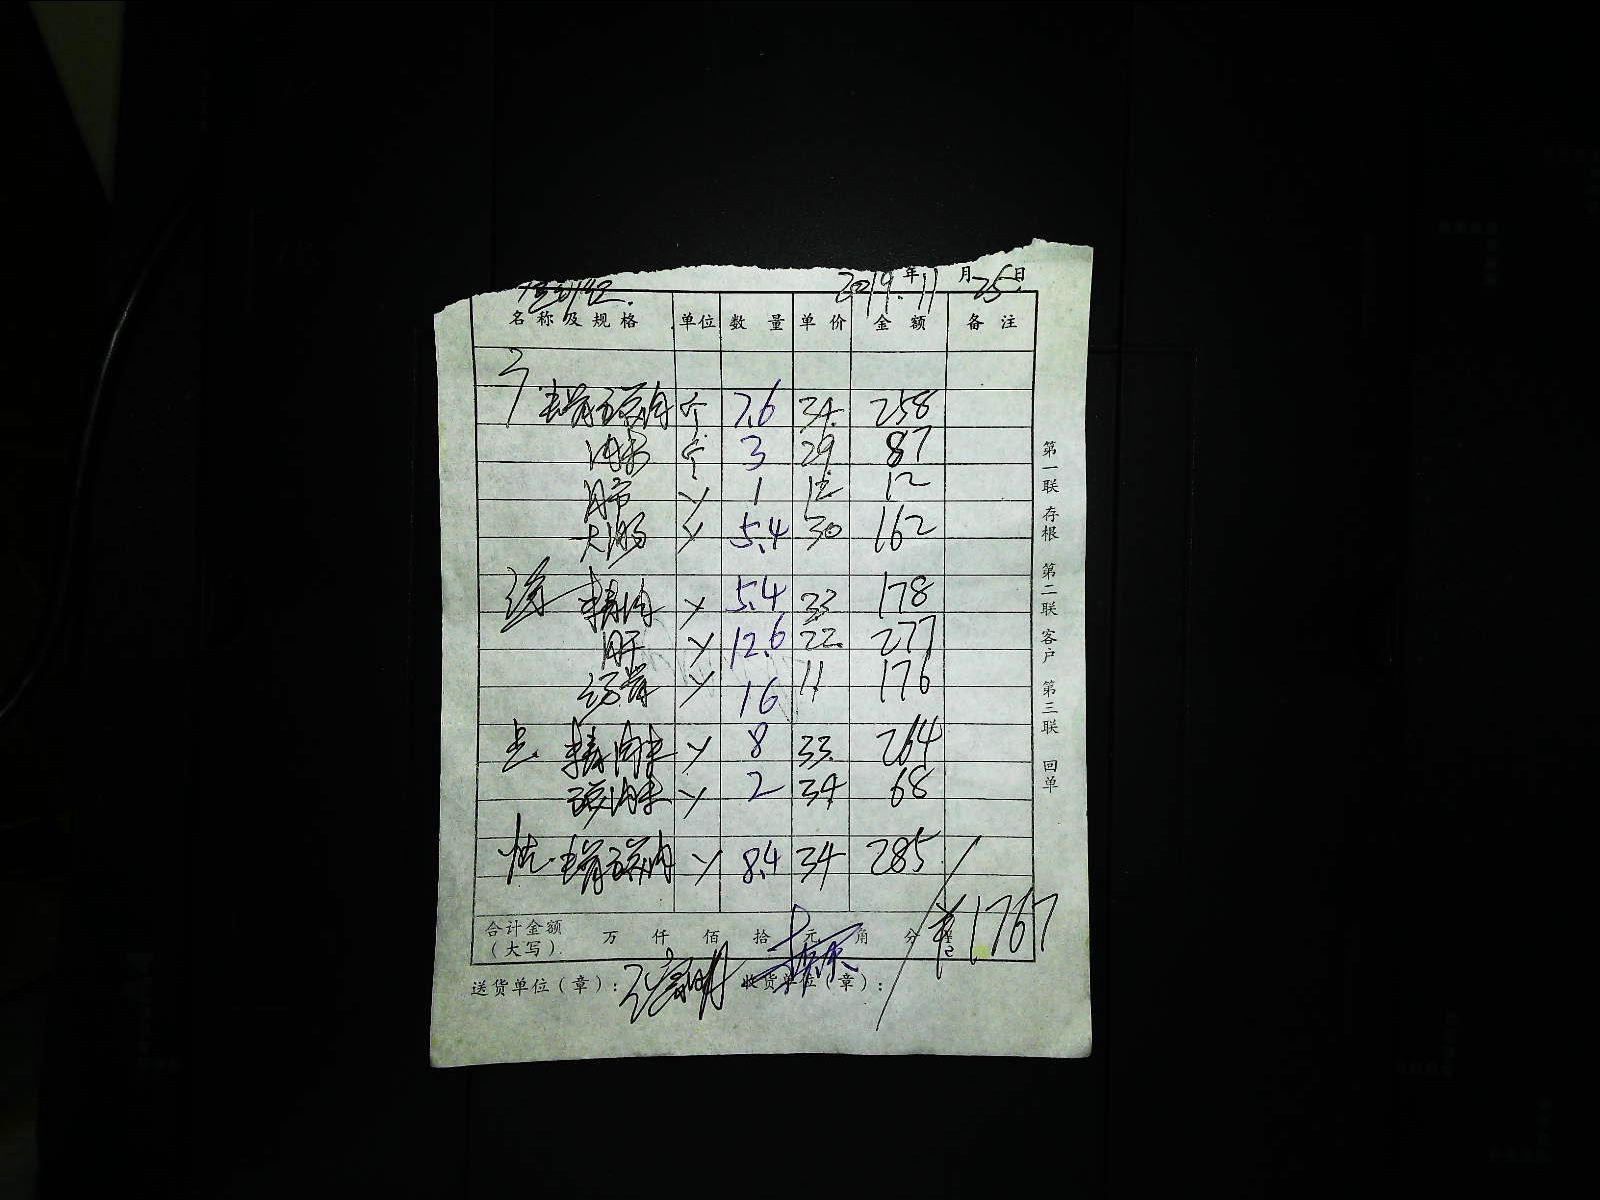 2019年11月25日
名称及规格 单位 数量 单价 金额 备注
去骨五花肉 个 7.6 34 258
肉末 个 3 29 87
肺 1 12 12
大肠 5.4 30 162
精肉 5.4 33 178
肝 12.6 22 277
汤骨 16 11 176
精肉末 8 33 264
五花肉末 2 34 68
去骨五花肉 8.4 34 285
合计金额
(大写) 万 仟 佰 拾 元 角 分 ¥1767
送货单位(章): 收货单位(章):
第一联 存根 第二联 客户 第三联 回单